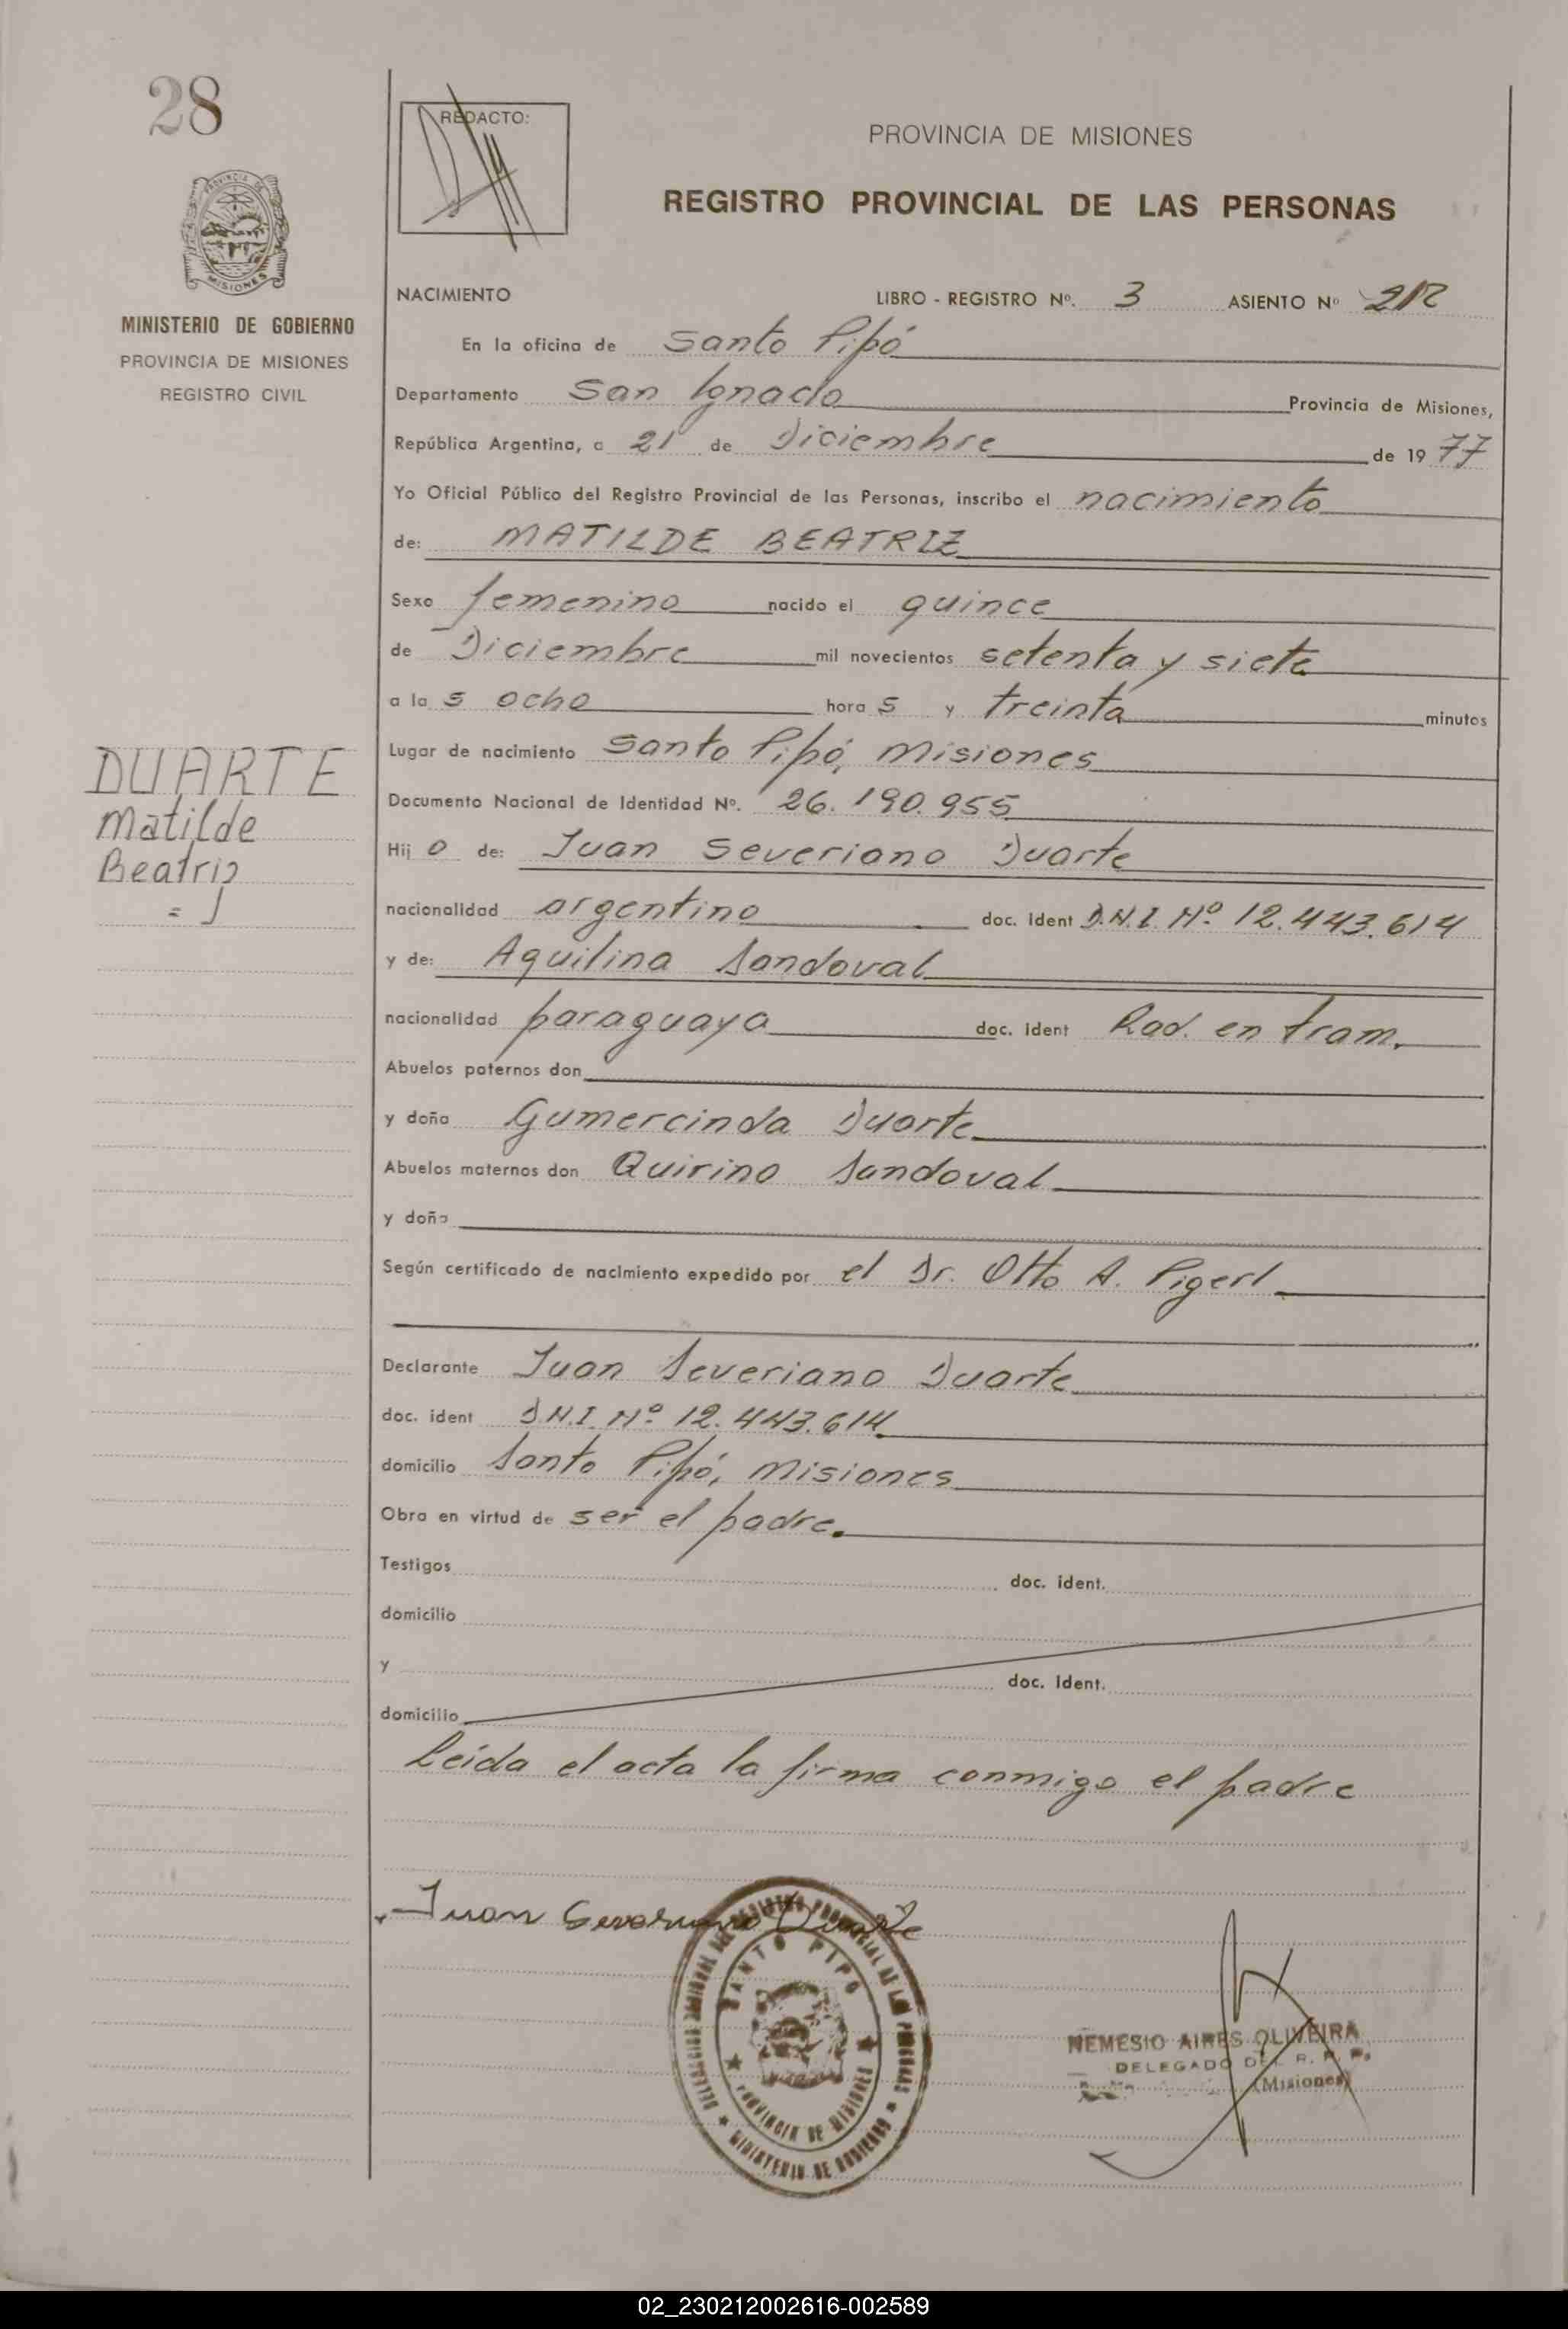 28
REDACTO:
PROVINCIA DE MISIONES
REGISTRO PROVINCIAL DE LAS PERSONAS
PROVINCIA DE
MISIONES
MINISTERIO DE GOBIERNO
PROVINCIA DE MISIONES
REGISTRO CIVIL
NACIMIENTO LIBRO - REGISTRO Nº. 3 ASIENTO Nº 212
En la oficina de Santo Pipó
Departamento San Ignacio Provincia de Misiones,
República Argentina, a 21 de Diciembre de 1977
Yo Oficial Público del Registro Provincial de las Personas, inscribo el nacimiento
de: MATILDE BEATRIZ
Sexo femenino nacido el quince
de Diciembre mil novecientos setenta y siete
a la s ocho hora s y treinta minutos
Lugar de nacimiento Santo Pipó, Misiones
Documento Nacional de Identidad Nº. 26.190.955
DUARTE
Matilde
Beatriz
Hij o de: Juan Severiano Duarte
nacionalidad argentino doc. ident D.N.I. Nº 12.443.614
y de: Aquilina Sandoval
nacionalidad paraguaya doc. ident Rad. en tram.
Abuelos paternos don
y doña Gumercinda Duarte
Abuelos maternos don Quirino Sandoval
y doña
Según certificado de nacimiento expedido por el Dr. Otto A. Pigerl
Declarante Juan Severiano Duarte
doc. ident D.N.I Nº 12.443.614
domicilio Santo Pipó, Misiones
Obra en virtud de ser el padre.
Testigos doc. ident.
domicilio
y doc. Ident.
domicilio
Leída el acta la firma conmigo el padre
Juan Severiano Duarte
SANTO PIPO
PROVINCIA DE MISIONES
MINISTERIO DE GOBIERNO
NEMESIO AIRES OLIVEIRA
DELEGADO DEL R. P. P.
(Misiones)
02_230212002616-002589